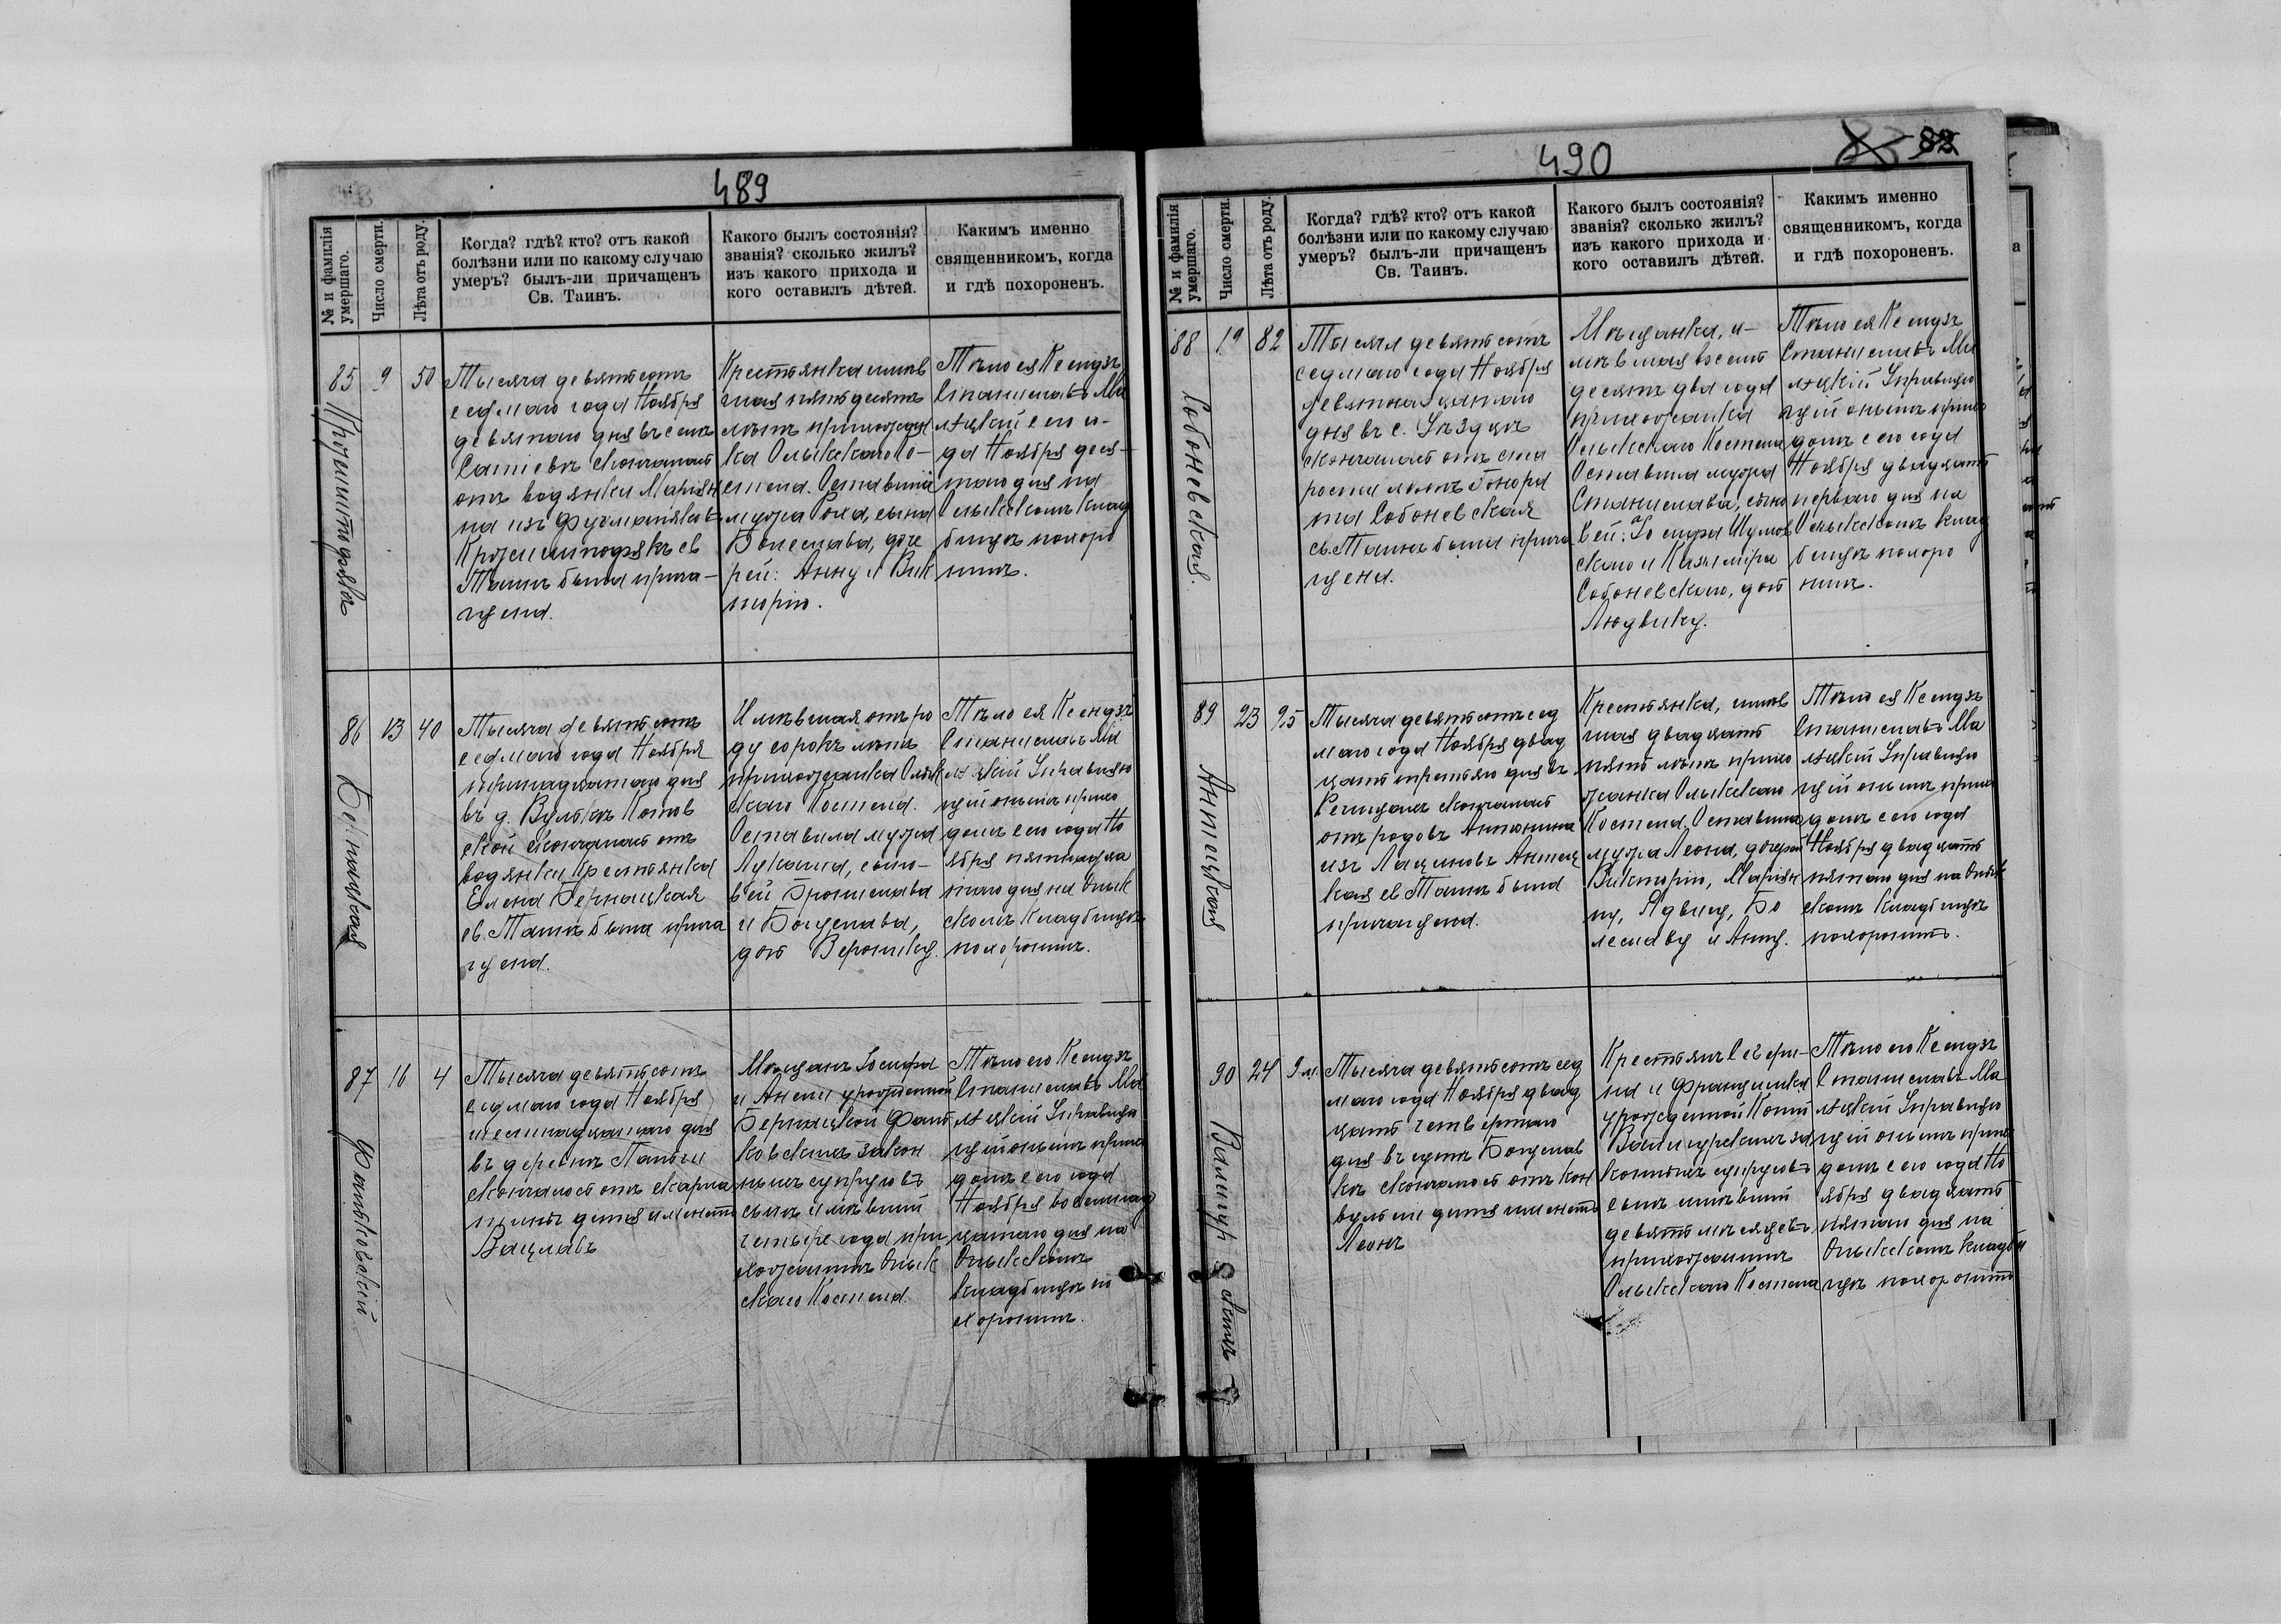 489
№ и фамилія умершаго.
Число смерти.
Лѣта отъ роду.
Когда? гдѣ? кто? отъ какой
болѣзни или по какому случаю
умеръ? былъ-ли причащенъ
Св. Таинъ.
Какого былъ состоянія?
званія? сколько жилъ?
изъ какого прихода и
кого оставилъ дѣтей.
Какимъ именно
священникомъ, когда
и гдѣ похороненъ.
85
9
50
Тысяча девятьсотъ
седмаго года Ноября
девятаго дня въ селѣ
скончалась
отъ водянки Маріян
на изъ
св
Таинъ была прича-
щена.
Крестьянка имѣв
шая пятьдесятъ
лѣтъ прихожан
ка Олыкскаго Ко-
стела. Оставила
мужа Роха, сына
Болеслава, доче
рей: Анну и Вик
торію.
Тѣло ея Ксендзъ
Станиславъ Ма
его го-
да Ноября деся-
таго дня на
Олыкскомъ клад
бищѣ похоро
нилъ.
86
Бернацкая
13
40
Тысяча девятьсотъ
седмаго года Ноября
тринадцатаго дня
въ д. Вулькѣ Котов
ской скончалась отъ
водянки Крестьянка
Елена Бернацкая
св. Таинъ была прича
щена.
Имѣвшая отъ ро
ду сорокъ лѣтъ
прихожанка Олык
скаго Костела.
Оставила мужа
Лукаша, сыно-
вей Бронислава
и Богуслава,
доч Веронику.
Тѣло ея Ксендзъ
Станиславъ Ма
Управляю
щій онымъ прихо
домъ сего года Но
ября пятнадца
таго дня на Олык
скомъ кладбищѣ
похоронилъ.
87
Фальковскій
16
4
Тысяча девятьсотъ
седмаго года Ноября
шестнадцатаго дня
въ деревнѣ
скончалось отъ скарла
тины дитя именемъ
Вацлавъ
Мѣщанъ Іосифа
и Анели урожденной
Бернацкой Фаль
ковскихъ закон
ныхъ супруговъ
сынъ имѣвшій
четыре года при
хожанинъ Олык
скаго Костела.
Тѣло его Ксендзъ
Станиславъ Ма
Управляю
щій онымъ прихо
домъ сего года
Ноября восемнад
цатаго дня на
Олыкскомъ
кладбищѣ по
хоронилъ.
490
82
№ и фамилія умершаго.
Число смерти.
Лѣта отъ роду.
Когда? гдѣ? кто? отъ какой
болѣзни или по какому случаю
умеръ? былъ-ли причащенъ
Св. Таинъ.
Какого былъ состоянія?
званія? сколько жилъ?
изъ какого прихода и
кого оставилъ дѣтей.
Какимъ именно
священникомъ, когда
и гдѣ похороненъ.
88
Собоневская.
19
82
Тысяча девятьсотъ
седмаго года Ноября
девятнадцатаго
дня въ с. Уѣздцѣ
скончалась отъ ста
рости лѣтъ Гонора
та Собоневская
св. Таинъ была прича
щена.
Мѣщанка, и-
мѣвшая восемь
десятъ два года
прихожанка
Олыкскаго Костела
Оставила мужа
Станислава, сыно
вей: Іосифа
скаго и Казиміра
Собоневскаго, доч
Людвику.
Тѣло ея Ксендзъ
Станиславъ Ма
Управляю
щій онымъ прихо
домъ сего года
Ноября двадцать
перваго дня на
Олыкскомъ клад
бищѣ похоро
нилъ.
89
23
25
Тысяча девятьсотъ сед
маго года Ноября двад
цать третьяго дня въ
скончалась
отъ родовъ Антонина
изъ
кая св. Таинъ была
причащена.
Крестьянка, имѣв
шая двадцать
пять лѣтъ прихо
жанка Олыкскаго
Костела. Оставила
мужа Леона, дочерей
Викторію, Маріян
ну, Ядвигу, Бо
леславу и Анну.
Тѣло ея Ксендзъ
Станиславъ Ма
Управляю
щій онымъ прихо
домъ сего года
Ноября двадцать
пятаго дня на Олык
скомъ кладбищѣ
похоронилъ.
90
24
9 м.
Тысяча девятьсотъ сед
маго года Ноября двад
цать четвертаго
дня въ Богуслав
кѣ скончалось отъ кон
вульсіи дитя именемъ
Леонъ
Крестьянъ Севери-
на и Францишки
урожденной
за
конныхъ супруговъ
сынъ имѣвшій
девять мѣсяцевъ
прихожанинъ
Олыкскаго Костела
Тѣло его Ксендзъ
Станиславъ Ма
Управляю
щій онымъ прихо
домъ сего года Но
ября двадцать
пятаго дня на
Олыкскомъ кладби
щѣ похоронилъ